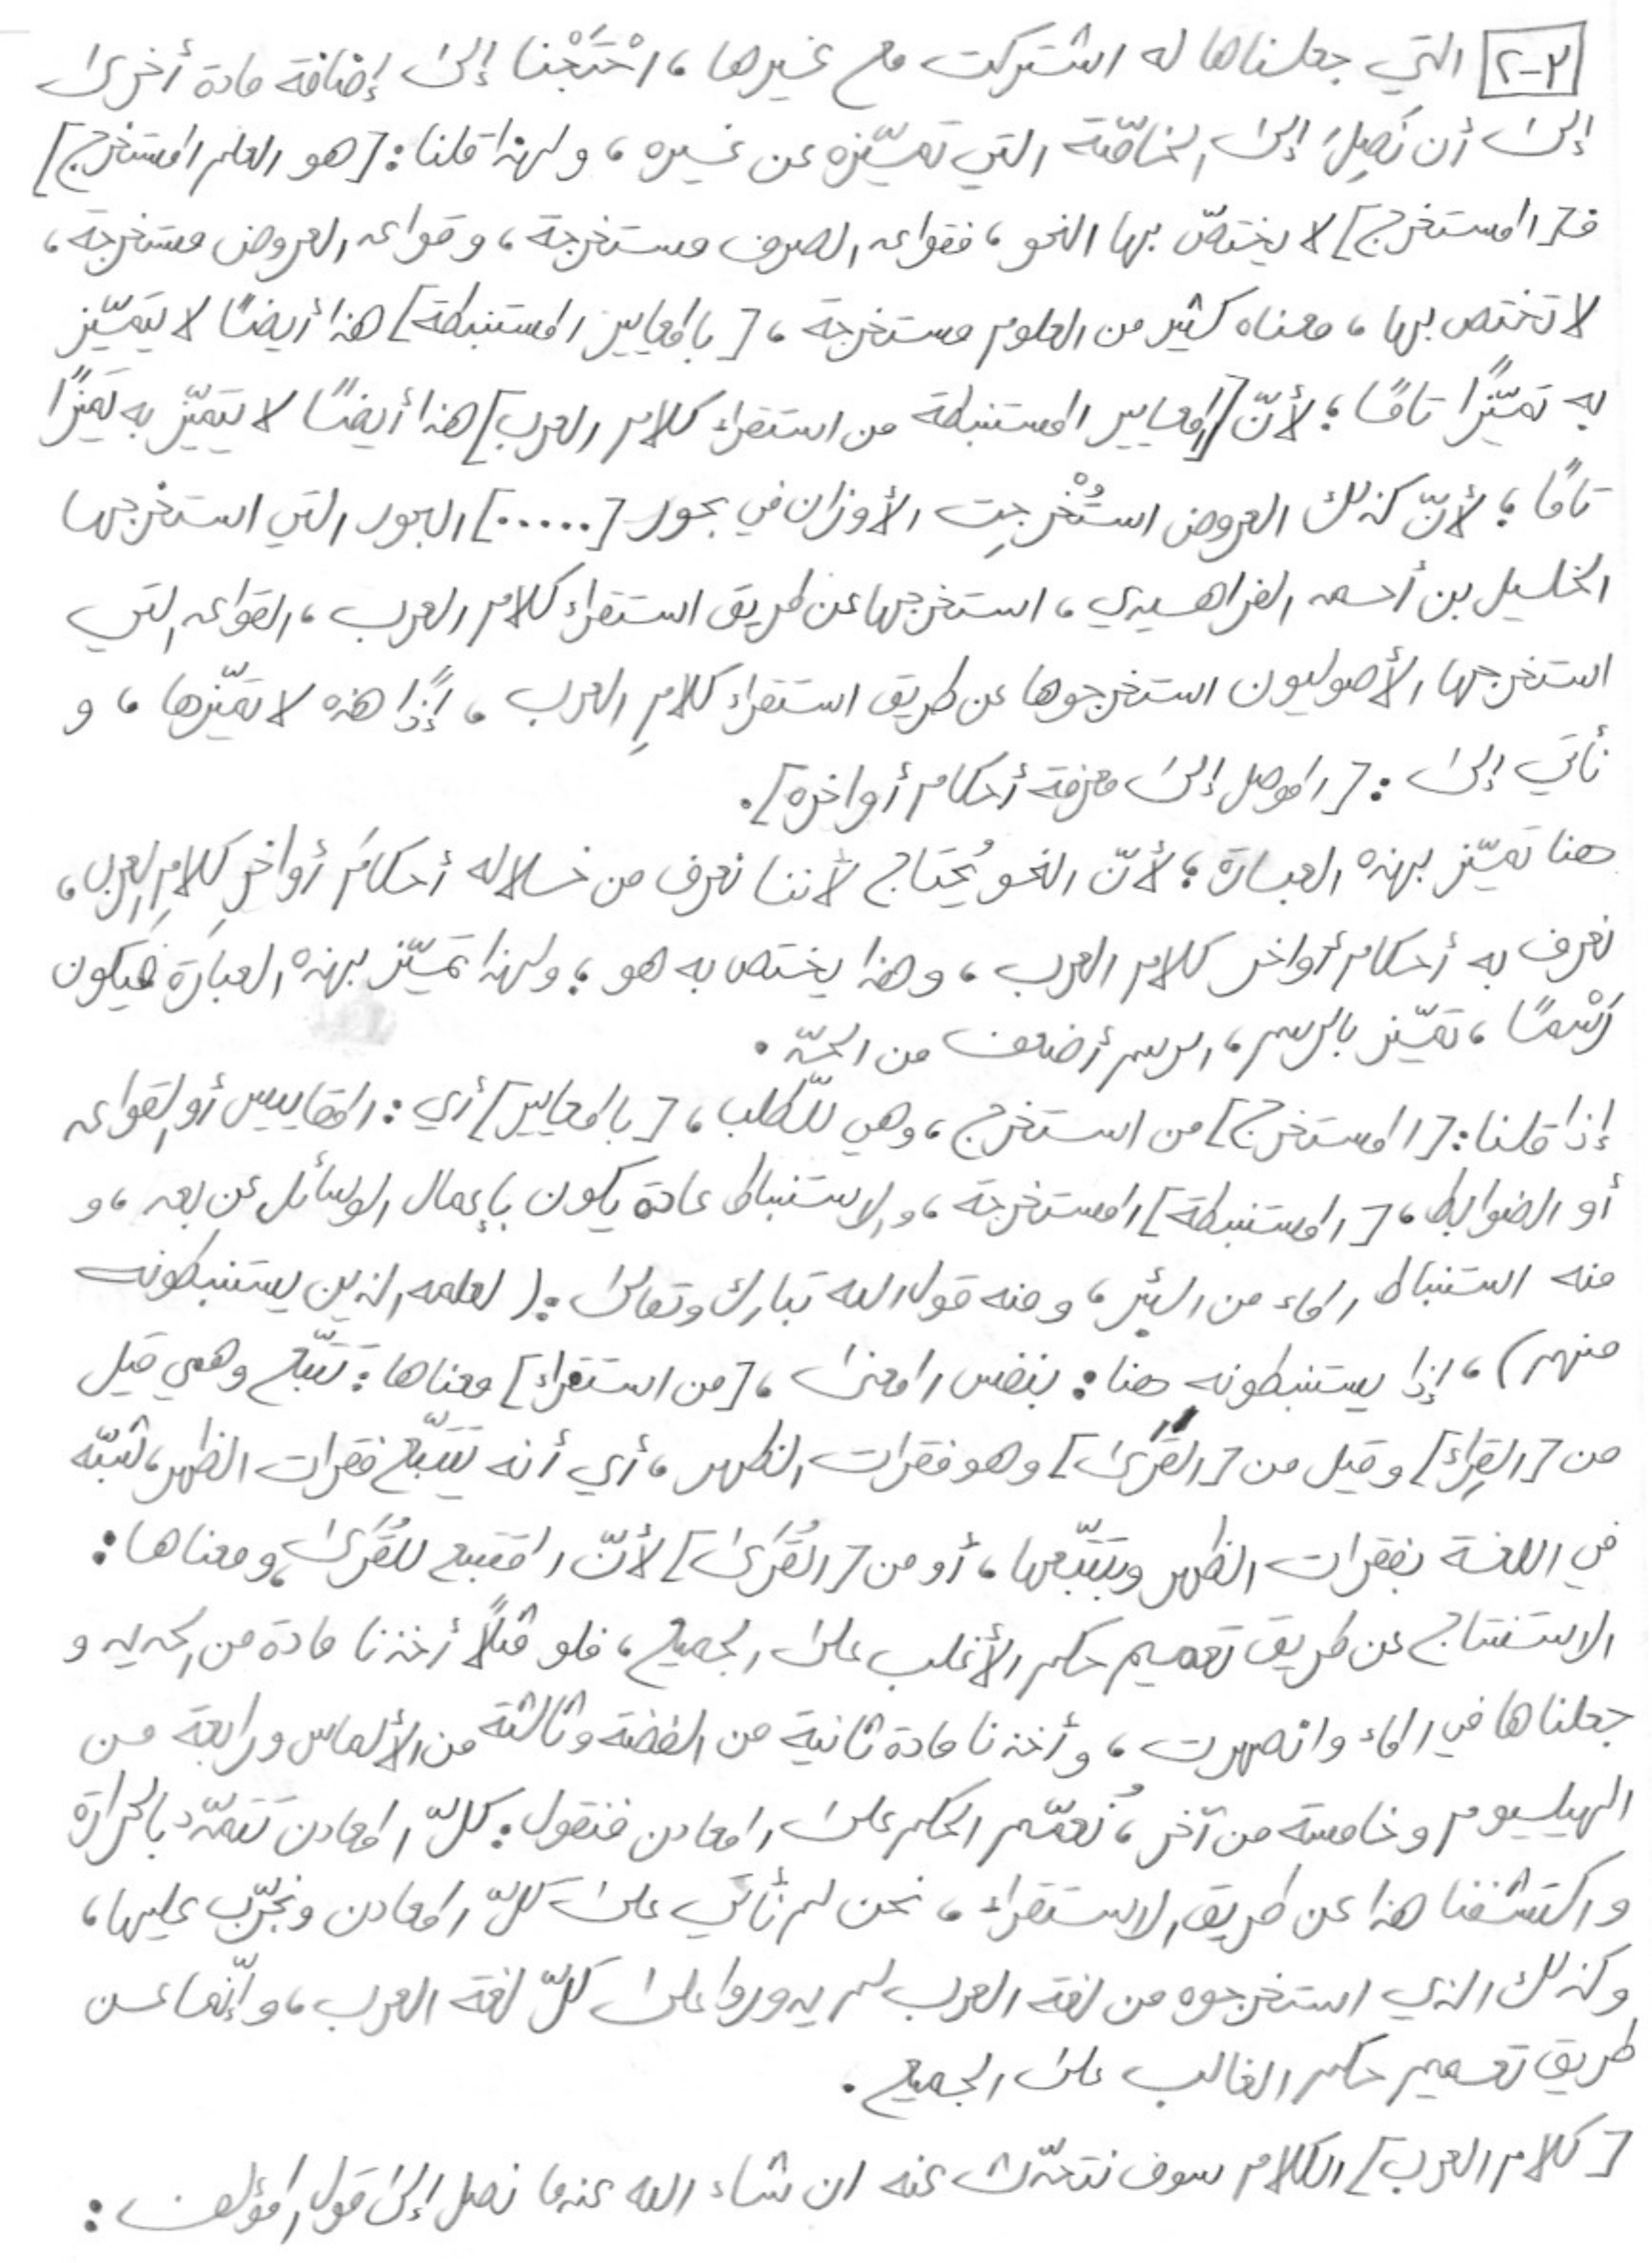 ٣-٢ التي جعلناها له اشتركت مع غيرها، احْتَجْنا إلى إضافة مادة أخرى
إلى أن نَصِلَ إلى الخاصّة التي تميّزه عن غيره، ولهذا قلنا: [هو العلم المستخرج]
فـ[المستخرج] لا يختصّ بها النحو، فقواعد الصرف مستخرجة، وقواعد العروض مستخرجة،
لا تختص بها، معناه كثير من العلوم مستخرجة، [بالمعايير المستنبطة] هذا أيضًا لا يتميّز
به تميّزًا تامًا؛ لأنّ [المعايير المستنبطة من استقراء كلام العرب] هذا أيضًا لا يتميّز به تميّزًا
تامًا؛ لأنّ كذلك العروض استُخْرجِت الأوزان في بحور [.....] البحور التي استخرجها
الخليل بن أحمد الفراهيدي، استخرجها عن طريق استقراء كلام العرب، القواعد التي
استخرجها الأصوليون استخرجوها عن طريق استقراء كلامِ العرب، إذًا هذه لا تميّزها، و
نأتي إلى: [الموصل إلى معرفة أحكام أواخره].
هنا تميّز بهذه العبارة؛ لأنّ النحو يُحتاج لأننا نعرف من خلاله أحكامَ أواخرِ كلامِ العرب،
نعرف به أحكام أواخر كلام العرب، وهذا يختص به هو؛ ولهذا تميّز بهذه العبارة فيكون
رَسْمًا، تميّز بالرسم، الرسم أضعف من الحدّ.
إذا قلنا: [المستخرج] من استخرج، وهي للطّلب، [بالمعايير] أي: المقاييس أو القواعد
أو الضوابط، [المستنبطة] المستخرجة، والاستنباط عادة يكون بإعمال الوسائل عن بعد، و
منه استنباط الماء من البئر، ومنه قول الله تبارك وتعالى: (لعلمه الذين يستنبطونه
منهم)، إذا يستنبطونه هنا: بنفس المعنى، [من استقراء] معناها: تَتَبّع وهي قيل
من [القِراء] وقيل من [القَرَى] وهو فقرات الظهر، أي أنه يَتَتَبّع فقرات الظهر، شبّه
في اللغة بفقرات الظهر وبتتبّعها، أو من [القُرَى] لأنّ المتتبع للقُرَى، ومعناها:
الاستنتاج عن طريق تعميم حكم الأغلب على الجميع، فلو مثلًا أخذنا مادة من الحديد و
جعلناها في الماء وانصهرت، وأخذنا مادة ثانية من الفضة وثالثة من الألماس ورابعة من
الهيليوم وخامسة من آخر، نُعمّم الحكم على المعادن فنقول: كلّ المعادن تَتَمَدّد بالحرارة
واكتشفنا هذا عن طريق الاستقراء، نحن لم نأتي على كلّ المعادن ونجرّب عليها،
وكذلك الذي استخرجوه من لغة العرب لم يدوروا على كلّ لغة العرب، وإنّما عن
طريق تعميم حكم الغالب على الجميع.
[كلام العرب] الكلام سوف نتحدّث عنه ان شاء الله عندما نصل إلى قول المؤلف: